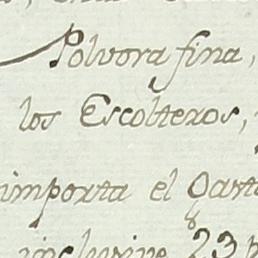 Polvora fina,
los Escolteros,
importa el Qarto
inclusive 23